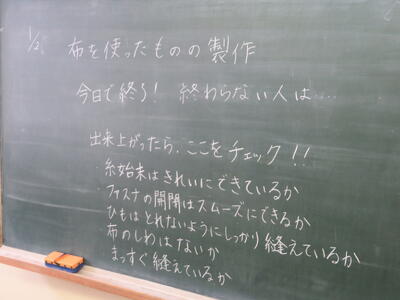 1/2 布を使ったものの製作
今日で終る! 終わらない人は……
出来上がったら、ここをチェック!!
・糸始末はきれいにできているか
・ファスナの開閉はスムーズにできるか
ひもはとれないようにしっかり縫えているか
布のしわはないか
まっすぐ縫えているか